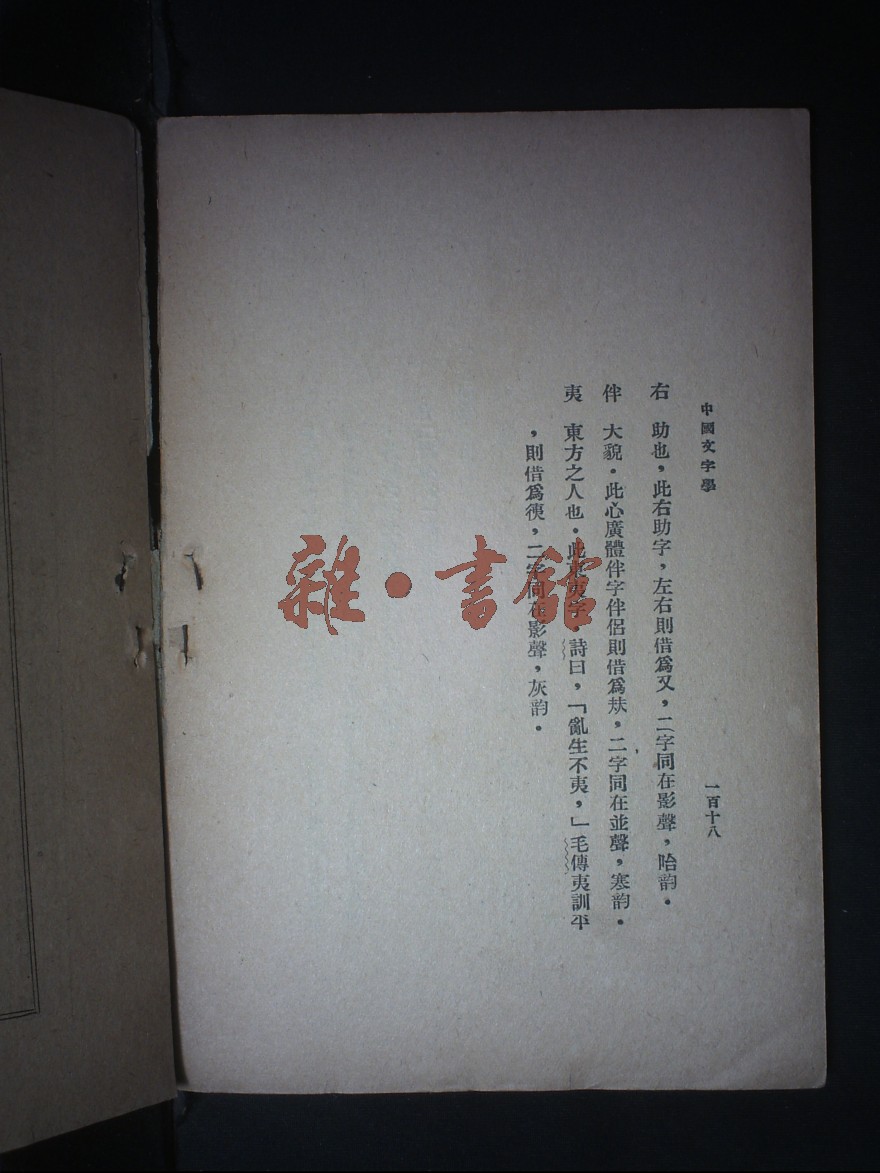 中國文字學
一百十八
右　助也，此右助字，左右則借爲又，二字同在影聲，咍韵．
伴　大貌．此心廣體伴字伴侶則借爲㚘，二字同在並聲，寒韵．
夷　東方之人也．此東夷字．詩曰，「亂生不夷，」毛傳夷訓平
，則借爲徺，二字同在影聲，灰韵．
雜·書館